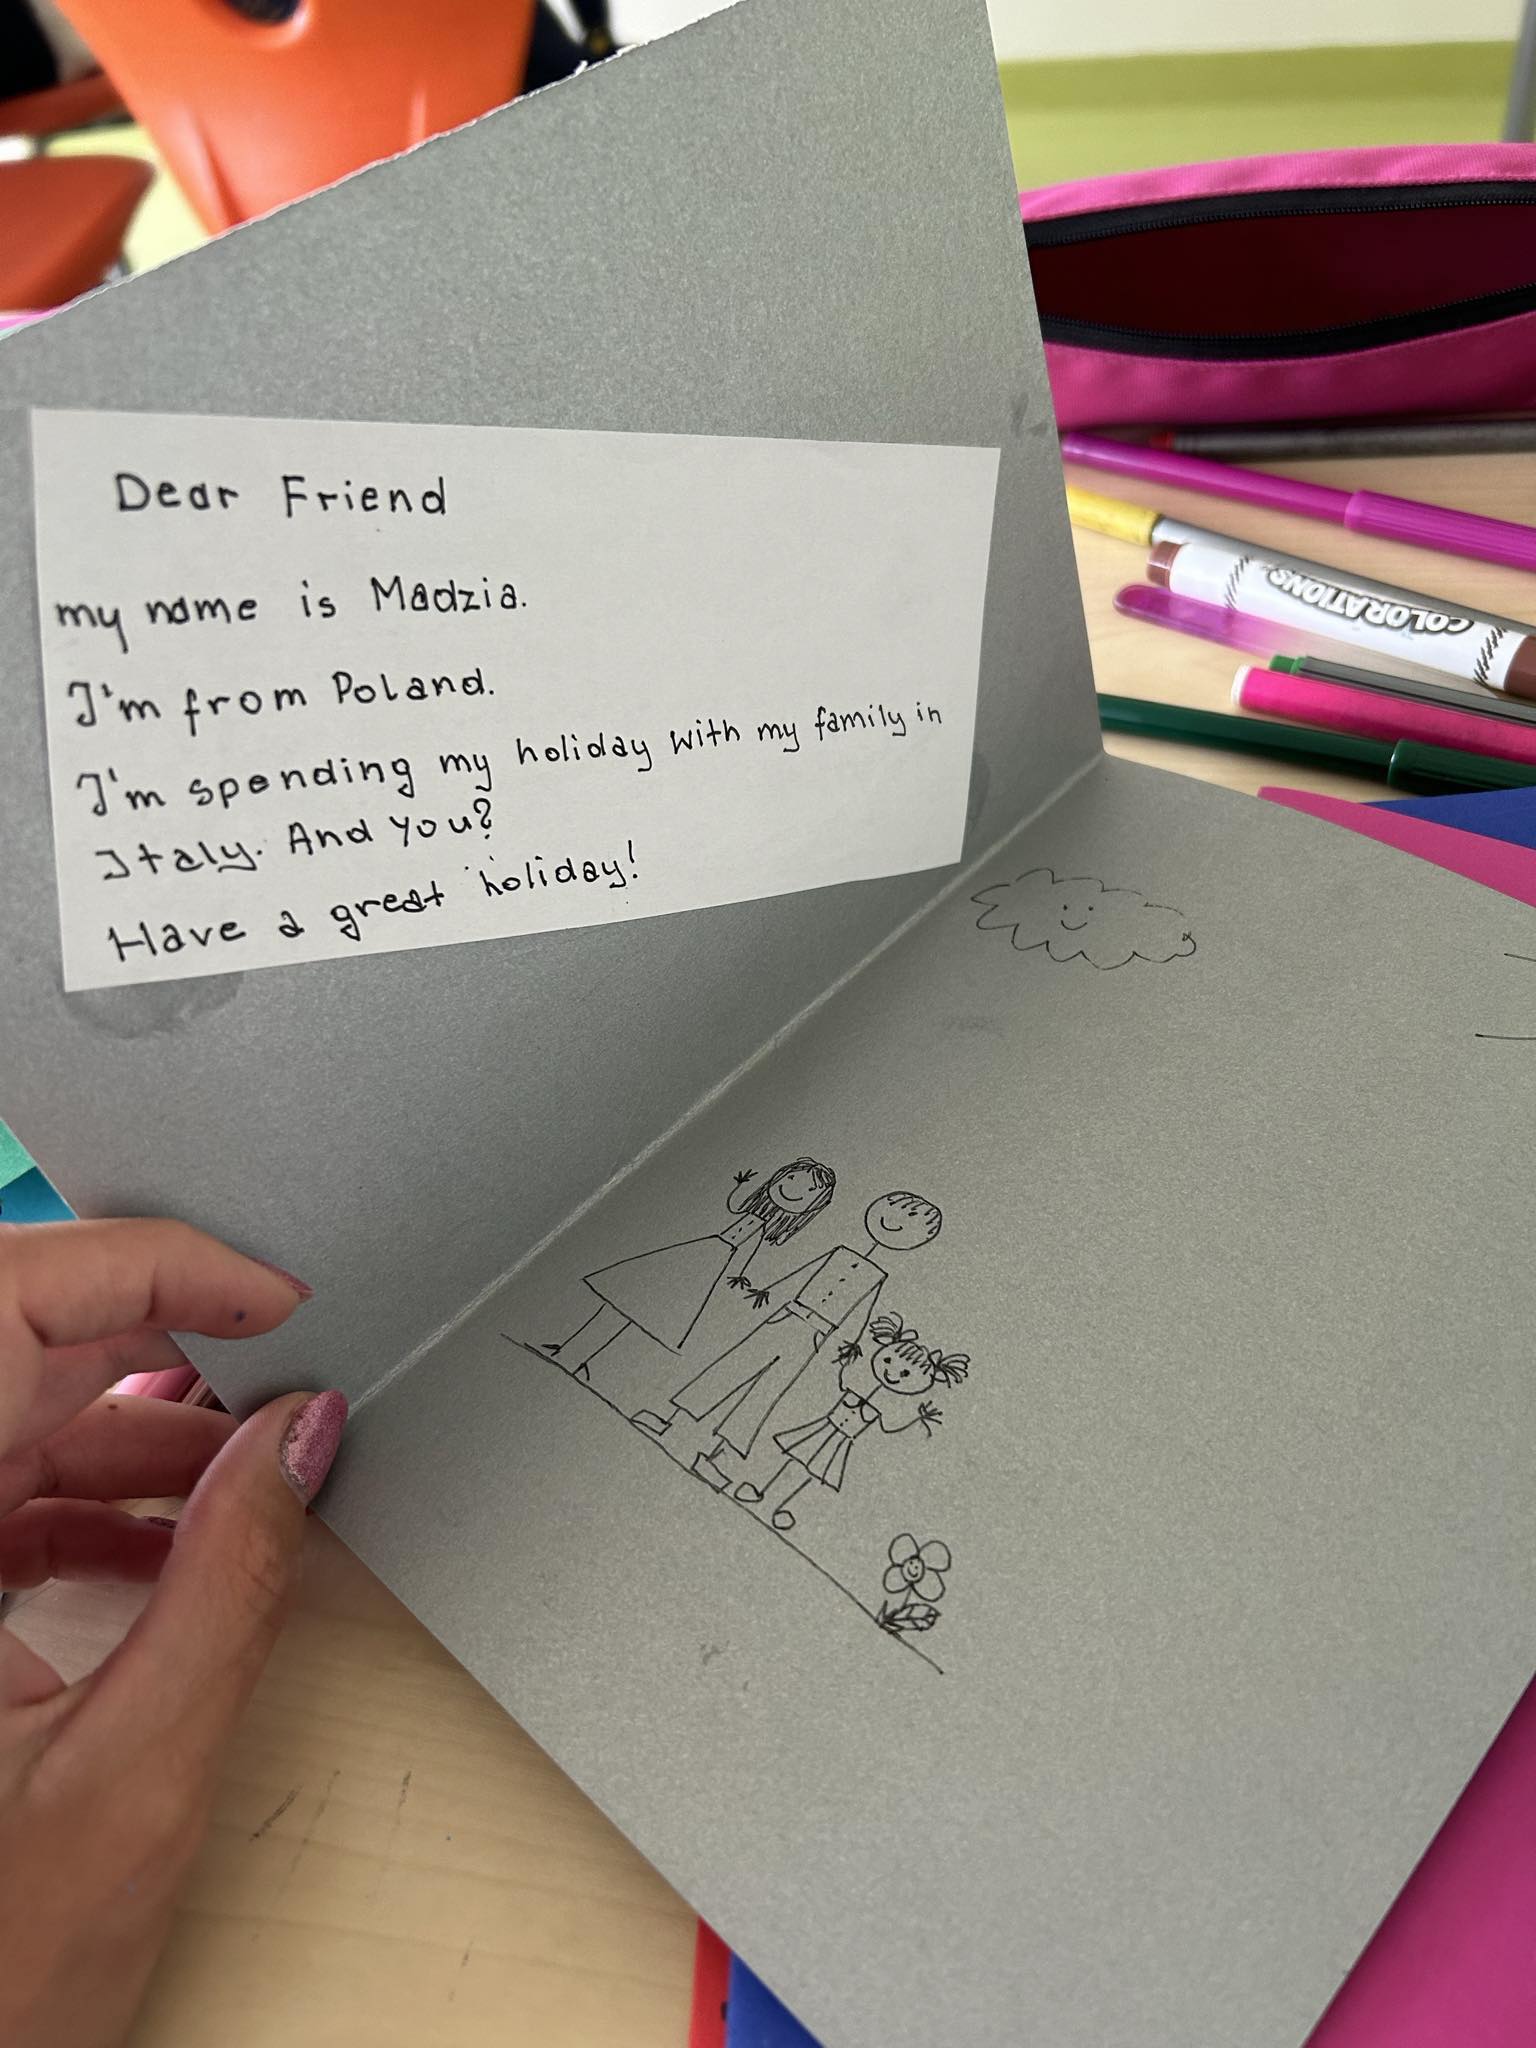 Dear Friend
my name is Madzia.
I'm from Poland.
I'm spending my holiday with my family in
Italy. And you?
Have a great holiday!
COLORATIONS